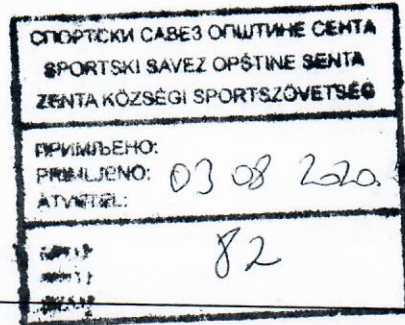 СПОРТСКИ САВЕЗ ОПШТИНЕ СЕНТА
SPORTSKI SAVEZ OPŠTINE SENTA
ZENTA KÖZSÉGI SPORTSZÖVETSÉG
ПРИМЉЕНО:
PRIMLJENO: 03 08 2020.
ÁTVÉTEL:
82